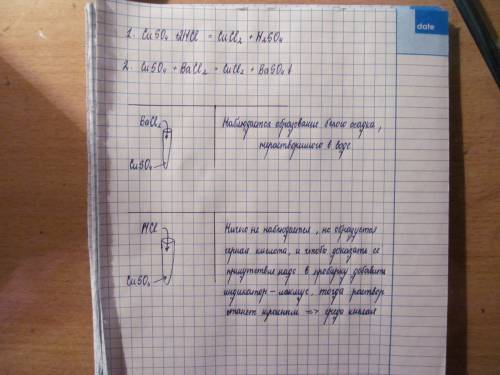 date
1. CuSO₄ + 2HCl = CuCl₂ + H₂SO₄
2. CuSO₄ + BaCl₂ = CuCl₂ + BaSO₄↓
BaCl₂
CuSO₄
Наблюдается образование белого осадка,
нерастворимого в воде.
HCl
CuSO₄
Ничего не наблюдается, но образуется
серная кислота, и чтобы доказать её
присутствие надо в пробирку добавить
индикатор - лакмус, тогда раствор
станет красным => среда кислая